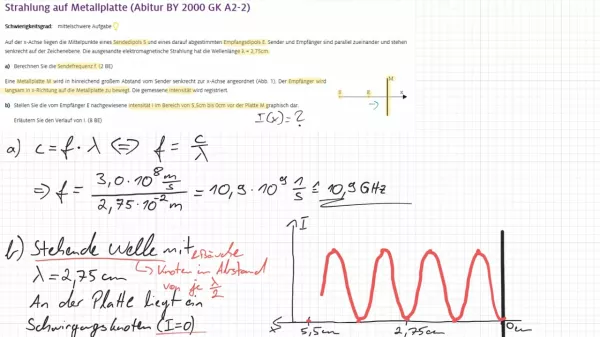 Strahlung auf Metallplatte (Abitur BY 2000 GK A2-2)
Schwierigkeitsgrad: mittelschwere Aufgabe
Auf der x-Achse liegen die Mittelpunkte eines Sendedipols S und eines darauf abgestimmten Empfangsdipols E. Sender und Empfänger sind parallel zueinander und stehen
senkrecht auf der Zeichenebene. Die ausgesandte elektromagnetische Strahlung hat die Wellenlänge λ = 2,75cm.
a) Berechnen Sie die Sendefrequenz f. (2 BE)
Eine Metallplatte M wird in hinreichend großem Abstand vom Sender senkrecht zur x-Achse angeordnet (Abb. 1). Der Empfänger wird
langsam in x-Richtung auf die Metallplatte zu bewegt. Die gemessene Intensität wird registriert.
b) Stellen Sie die vom Empfänger E nachgewiesene Intensität I im Bereich von 5,5cm bis 0cm vor der Platte M graphisch dar.
Erläutern Sie den Verlauf von I. (8 BE)
S E M x
I(x) = ?
a) c = f · λ <=> f = c/λ
=> f = 3,0 · 10^8 m/s / 2,75 · 10^-2 m = 10,9 · 10^9 1/s ≙ 10,9 GHz
b) Stehende Welle mit
λ = 2,75 cm
Knoten im Abstand
von je λ/2
An der Platte liegt ein
Schwingungsknoten (I=0)
I
x 5,5cm 2,75cm 0cm